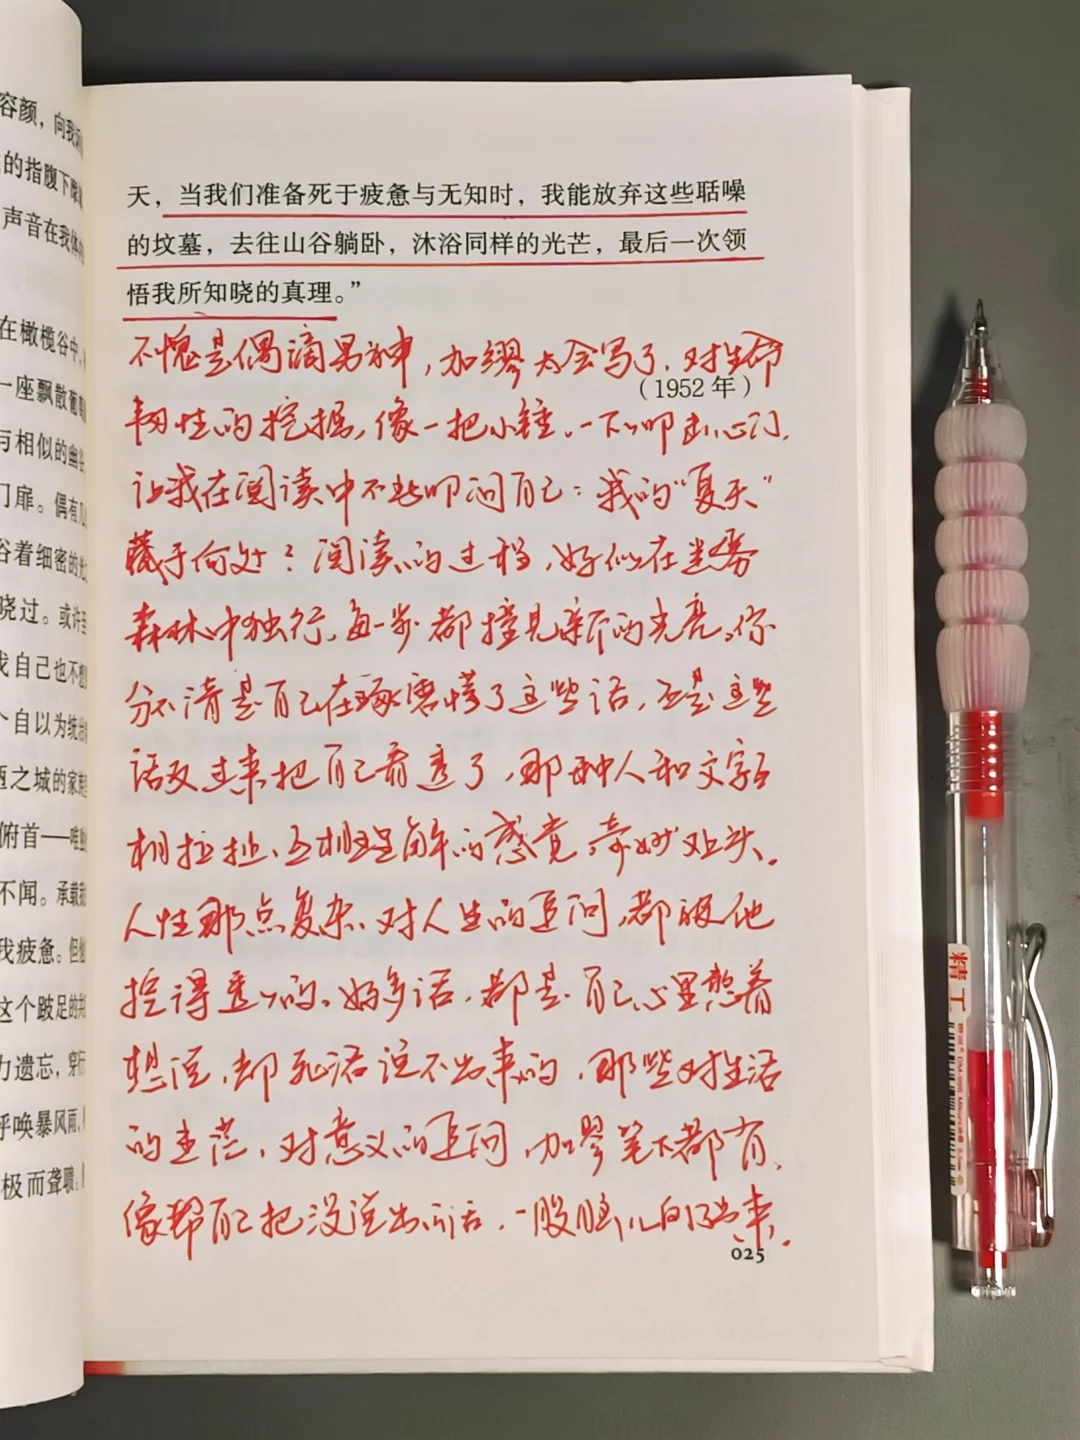 容颜，向我
的指腹下
声音在我体
在橄榄谷中，
一座飘散葡
与相似的幽谷
门扉。偶有几
谷着细密的光
晓过。或许
我自己也不
个自以为统治
之城的家
俯首——唯
不闻。承载我
我疲惫。但他
这个跛足的共
力遗忘，穿
呼唤暴风雨，
极而聋聩，
天，当我们准备死于疲惫与无知时，我能放弃这些聒噪
的坟墓，去往山谷躺卧，沐浴同样的光芒，最后一次领
悟我所知晓的真理。”
（1952年）
不愧是偶滴男神，加缪太会写了，对生命
韧性的挖掘，像一把小锤，一下下叩击心门，
让我在阅读中不断叩问自己：我的“夏天”
藏于何处？阅读的过程，好似在迷雾
森林中独行，每一步都撞见新的光亮。你
分不清是自己在琢磨懂了这些话，还是这些
话反过来把自己看透了，那种人和文字
相拉扯、互相理解的感觉，奇妙过头。
人性那点复杂、对人生的追问，都被他
挖得透透的。好多话，都是自己心里憋着
想说，却死活说不出来的，那些对生活
的迷茫，对意义的追问，加缪笔下都有，
像帮自己把没说出的话，一股脑儿的倒出来。
025
精工